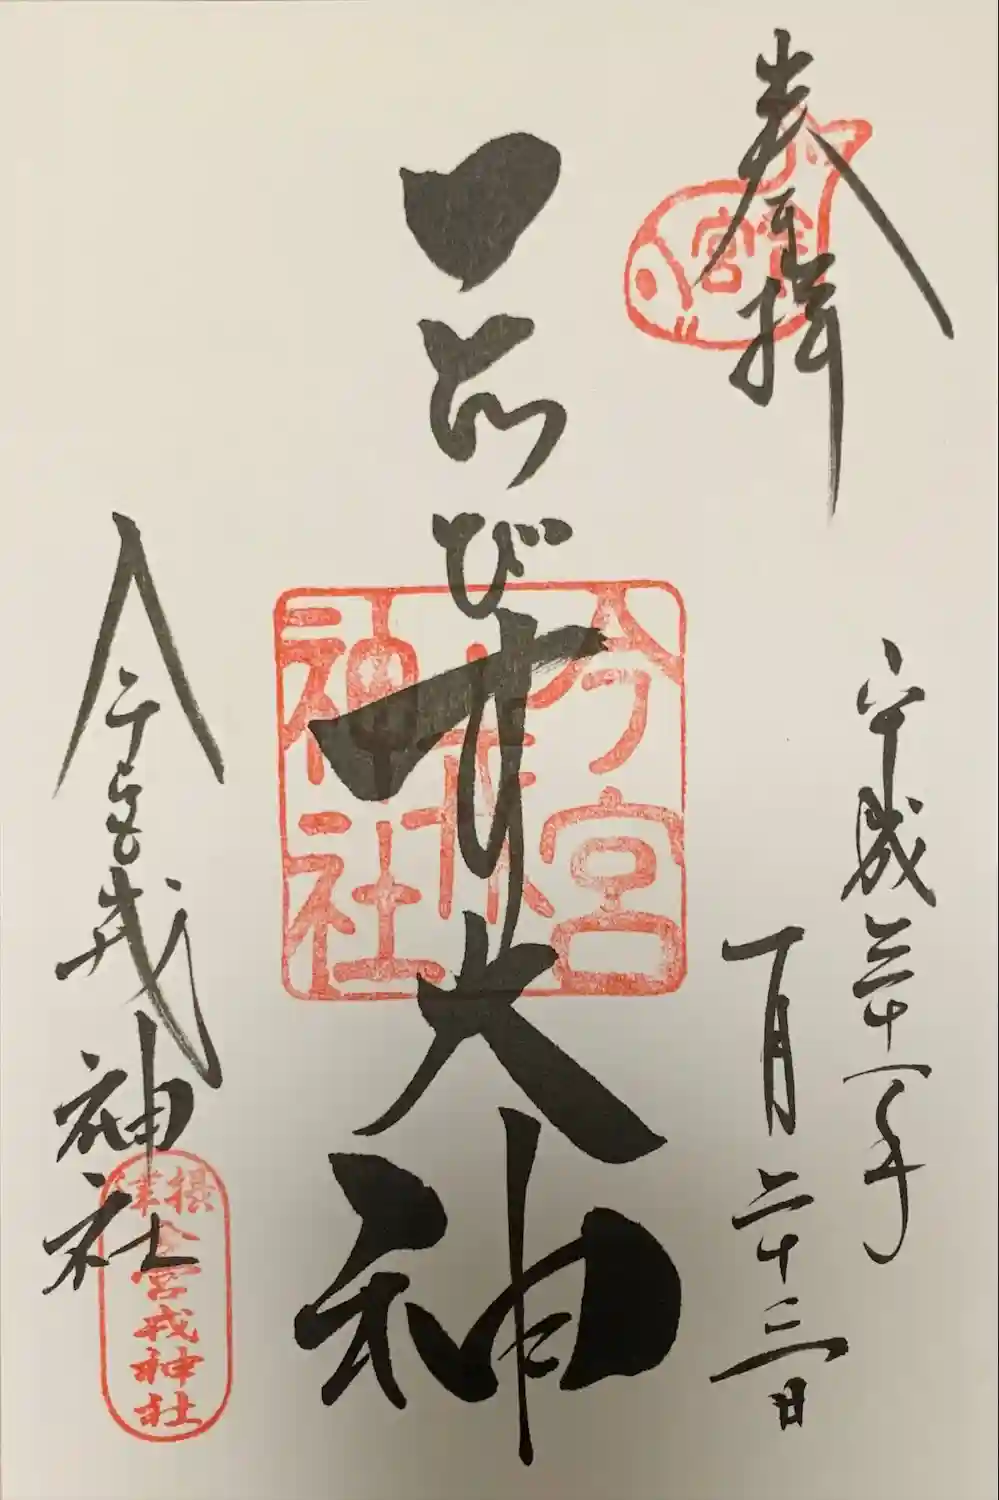 奉拝
今宮
平成三十一年
一月二十三日
ゑびす大神
今宮
戎
神社
今宮戎神社
摂津
今宮戎神社